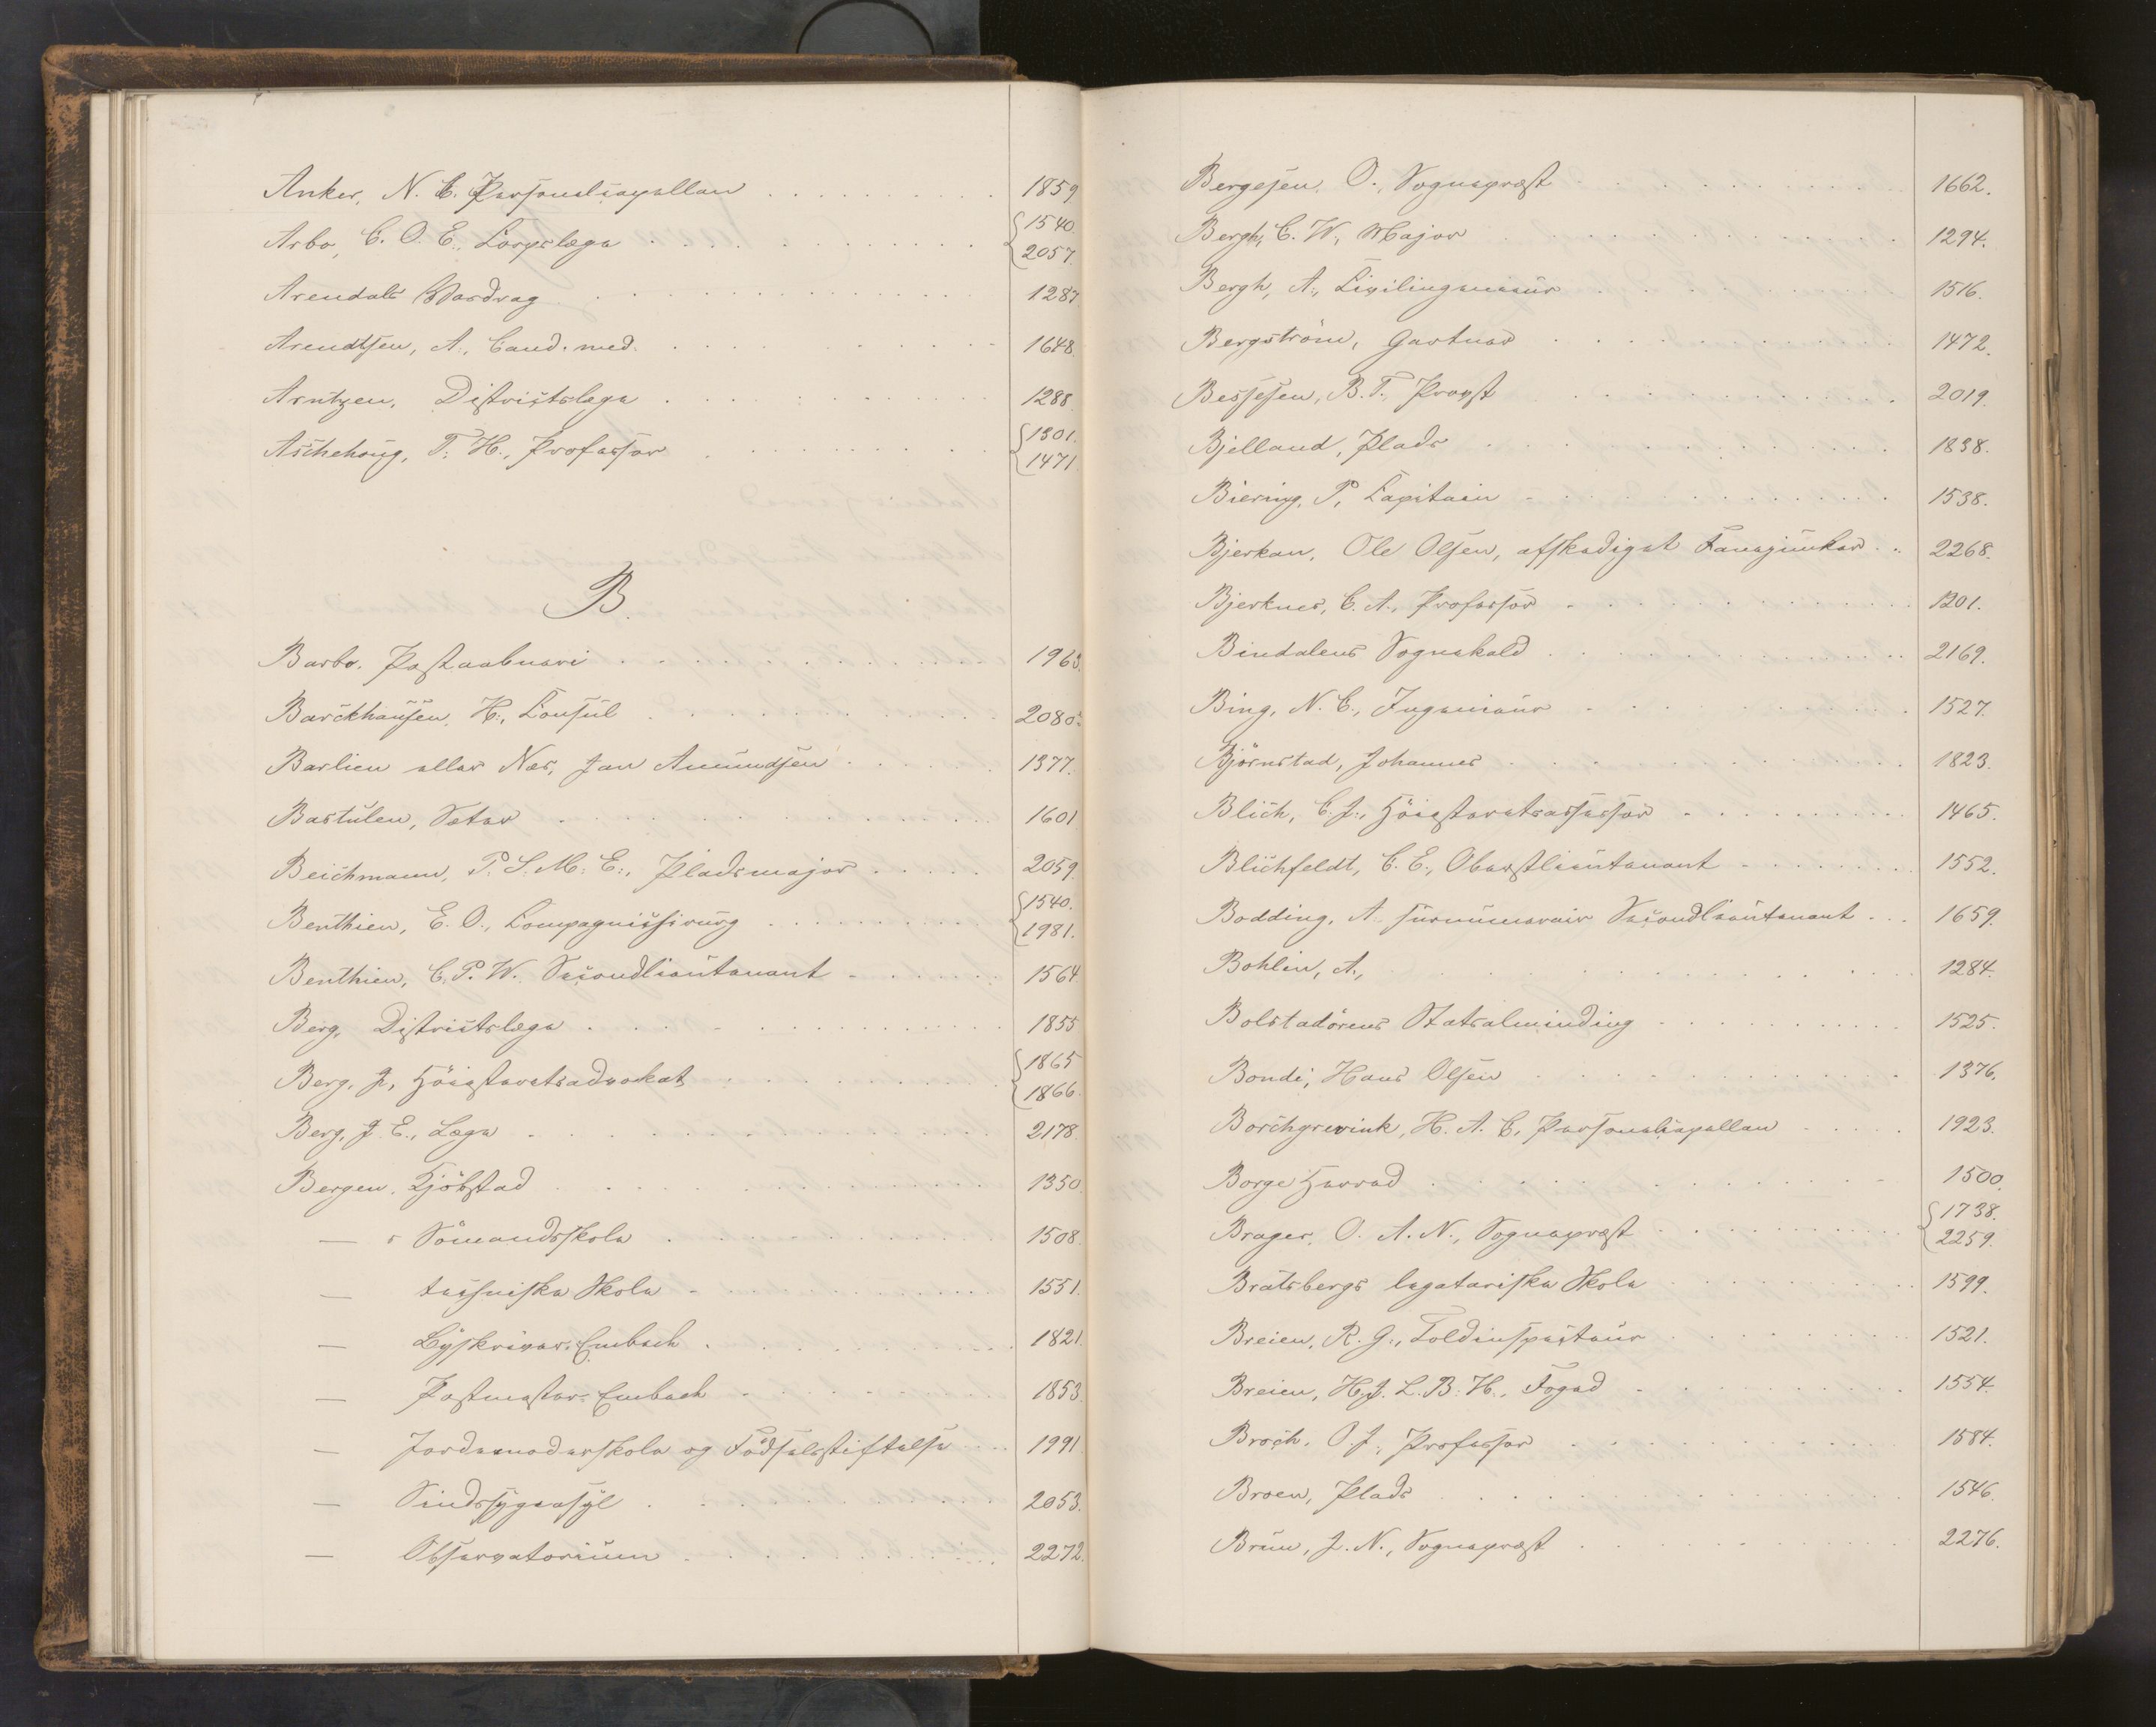 Anker, N. C. Personelcapellan 1859
Arbo, C. O. E., Corpslæge {1540. 2057.
Arendals Vasdrag 1287
Arendtsen, A., Cand. med. 1648.
Arntzen, Districtslæge 1288
Aschehoug, T. H., Professor {1301. 1471.
B.
Barbo, Postaabneri 1963.
Barckhausen, H., Consul 2080.
Barlien eller Næs, Jon Amundsen 1377.
Bastulen, Sæter 1601
Beichmann, P. S. M. E., Pladsmajor 2059.
Benthien, E. O., Compagnichirurg {1540. 1981.
Benthien, C. P. W. Secondlieutenant 1564.
Berg, Districtslæge 1855
Berg, J, Höiesteretsadvokat {1865 1866.
Berg, J. E., Læge 2178.
Bergen, Kjöbstad 1350.
— s Sömandsskole 1508.
— techniske Skole 1551.
— Byskriver-Embede 1821.
— Postmester-Embede 1853.
— Jordemoderskole og Födselsstiftelse 1991
— Sindssygeasyl 2053.
— Observatorium 2272.
Bergesen, O., Sognepræst 1662.
Bergh, C. W., Major 1294.
Bergh, A., Civilingenieur 1516.
Bergström, Gartner 1472.
Bessesen, B. T., Provst 2019.
Bjelland, Plads 1838.
Biering, P, Capitain 1538.
Bjerkan, Ole Olsen, afskediget Fanejunker 2268.
Bjerknes, C. A., Professor 1301.
Bindalens Sognekald 2169.
Bing, N. C., Ingenieur 1527.
Björnstad, Johannes 1823.
Blich, C. J., Höiesteretsassessor 1465.
Blichfeldt, C. E., Oberstlieutenant 1552.
Bodding, A. surnumerair Secondlieutenant 1659.
Bohlin, A., 1284.
Bolstadörens Statsalminding 1525.
Bondi, Hans Olsen 1376.
Borchgrevink, H. A. C, Personelcapellan 1923.
Borge Herred 1500.
Brager, O. A. N., Sognepræst {1738. 2259.
Bratsbergs legatariske Skole 1599.
Breien, R. G., Toldinspecteur 1521.
Breien, H. J. L. B. H., Foged 1554.
Broch, O. J., Professor 1584.
Broen, Plads 1546.
Brun, J. N., Sognepræst 2276.